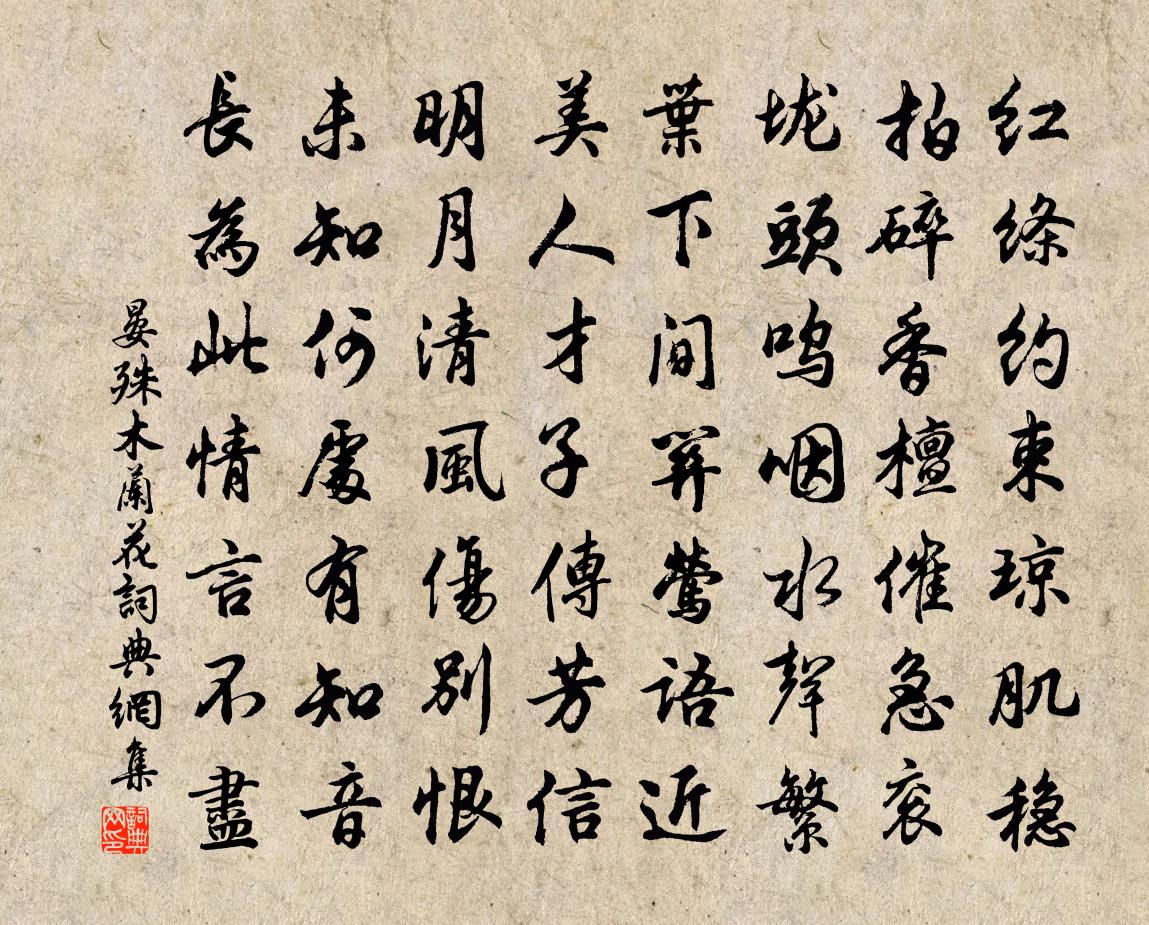 红绦约束琼肌稳
拍碎香檀催急衮
垅頭呜咽水聲繁
葉下間關鶯語近
美人才子傳芳信
明月清風傷別恨
未知何處有知音
長為此情言不盡
晏殊木蘭花詞典網集
詞典网印